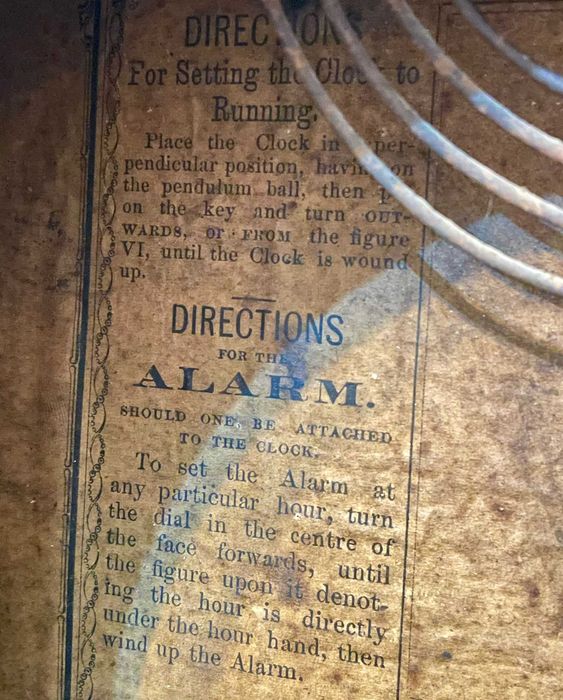 DIRECTIONS
For Setting the Clock to
Running.
Place the Clock in per-
pendicular position, having on
the pendulum ball, then
on the key and turn OUT-
WARDS, or FROM the figure
VI, until the Clock is wound
up.
DIRECTIONS
FOR THE
ALARM.
SHOULD ONE BE ATTACHED
TO THE CLOCK.
To set the Alarm at
any particular hour, turn
the dial in the centre of
the face forwards, until
the figure upon it denot-
ing the hour is directly
under the hour hand, then
wind up the Alarm.